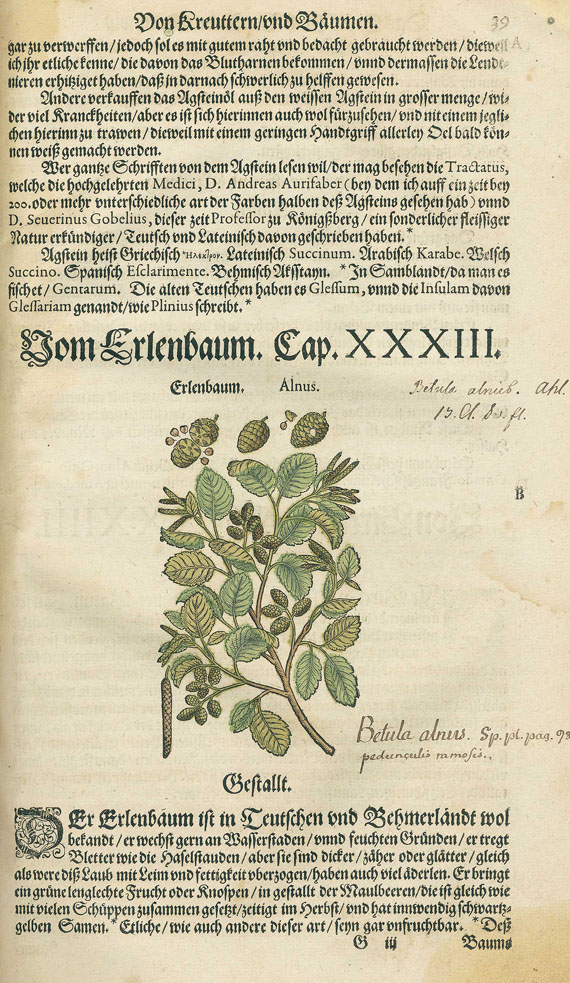 Von Kreuttern/vnd Bäumen. 39
gar zu verwerffen/jedoch sol es mit gutem raht vnd bedacht gebraucht werden/dieweil A
ich jhr etliche kenne/die davon das Blutharnen bekommen/vnnd dermassen die Lendt-
nieren erhitziget haben/daß in darnach schwerlich zu helffen gewesen.
Andere verkauffen das Agsteinöl auß den weissen Agstein in grosser menge/wi-
der viel Kranckheiten/aber es ist sich hierinnen auch wol fürzusehen/vnd nit einem jegli-
chen hierinn zu trawen/dieweil mit einem geringen Handtgriff allerley Oel bald kön-
nen weiß gemacht werden.
Wer gantze Schrifften von dem Agstein lesen wil/der mag besehen die Tractatus,
welche die hochgelehrten Medici, D. Andreas Aurifaber (bey dem ich auff ein zeit bey
200. oder mehr vnterschiedliche art der Farben halben deß Agsteins gesehen hab) vnnd
D. Seuerinus Gobelius, dieser zeit Professor zu Königßberg/ein sonderlicher fleissiger
Natur erkündiger/Teutsch vnd Lateinisch davon geschrieben haben.*
Agstein heist Griechisch ἤλεκτρον. Lateinisch Succinum. Arabisch Karabe. Welsch
Succino. Spanisch Esclarimente. Behmisch Aksstayn. * In Samblandt/da man es
fischet/Gentarum. Die alten Teutschen haben es Glessum, vnnd die Insulam davon
Glessariam genandt/wie Plinius schreibt.*
Vom Erlenbaum. Cap. XXXIII.
Erlenbaum. Alnus.
Betula alnus.
B
Betula alnus. Sp. pl. pag. 98
pedunculis ramosis.
Gestallt.
DEr Erlenbaum ist in Teutschen vnd Behmerlandt wol
bekandt/er wechst gern an Wasserstaden/vnnd feuchten Gründen/er tregt
Bletter wie die Haselstauden/aber sie sind dicker/zäher oder glätter/gleich
als were diß Laub mit Leim vnd fettigkeit vberzogen/haben auch viel äderlen. Er bringt
ein grüne lenglechte Frucht oder Knospen/in gestallt der Maulbeeren/die ist gleich wie
mit vielen Schüppen zusammen gesetzt/zeitigt im Herbst/vnd hat innwendig schwartz-
gelben Samen. * Etliche/wie auch andere dieser art/seyn gar vnfruchtbar. * Deß
G iij Baums